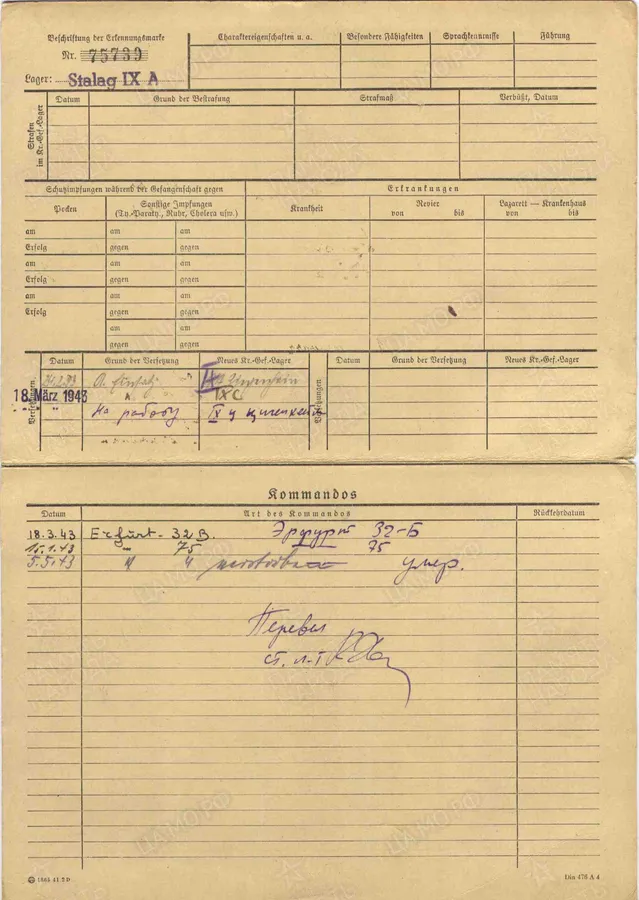 Beschriftung der Erkennungsmarke
Nr. 75739
Lager: Stalag IX A
Charaktereigenschaften u. a.
Besondere Fähigkeiten
Sprachkenntnisse
Führung
Strafen im Kr.-Gef.-Lager
Datum
Grund der Bestrafung
Strafmaß
Verbüßt, Datum
Schutzimpfungen während der Gefangenschaft gegen
Erkrankungen
Pocken
Sonstige Impfungen
(Ty.-Paraty., Ruhr, Cholera usw.)
Krankheit
Revier
von bis
Lazarett — Krankenhaus
von bis
am am am
Erfolg gegen gegen
am am am
Erfolg gegen gegen
am am am
Erfolg gegen gegen
am am
gegen gegen
Versetzungen
Datum
Grund der Versetzung
Neues Kr.-Gef.-Lager
Versetzungen
Datum
Grund der Versetzung
Neues Kr.-Gef.-Lager
18. März 1943
IX C
На работу IX ц
Kommandos
Datum
Art des Kommandos
Rückkehrdatum
18.3.43 Erfurt - 32 B. Эрфурт 32-Б
75 75
5.5.43 умер.
Перевел
ст. л-т
Din 476 A 4
ЦАМО.РФ